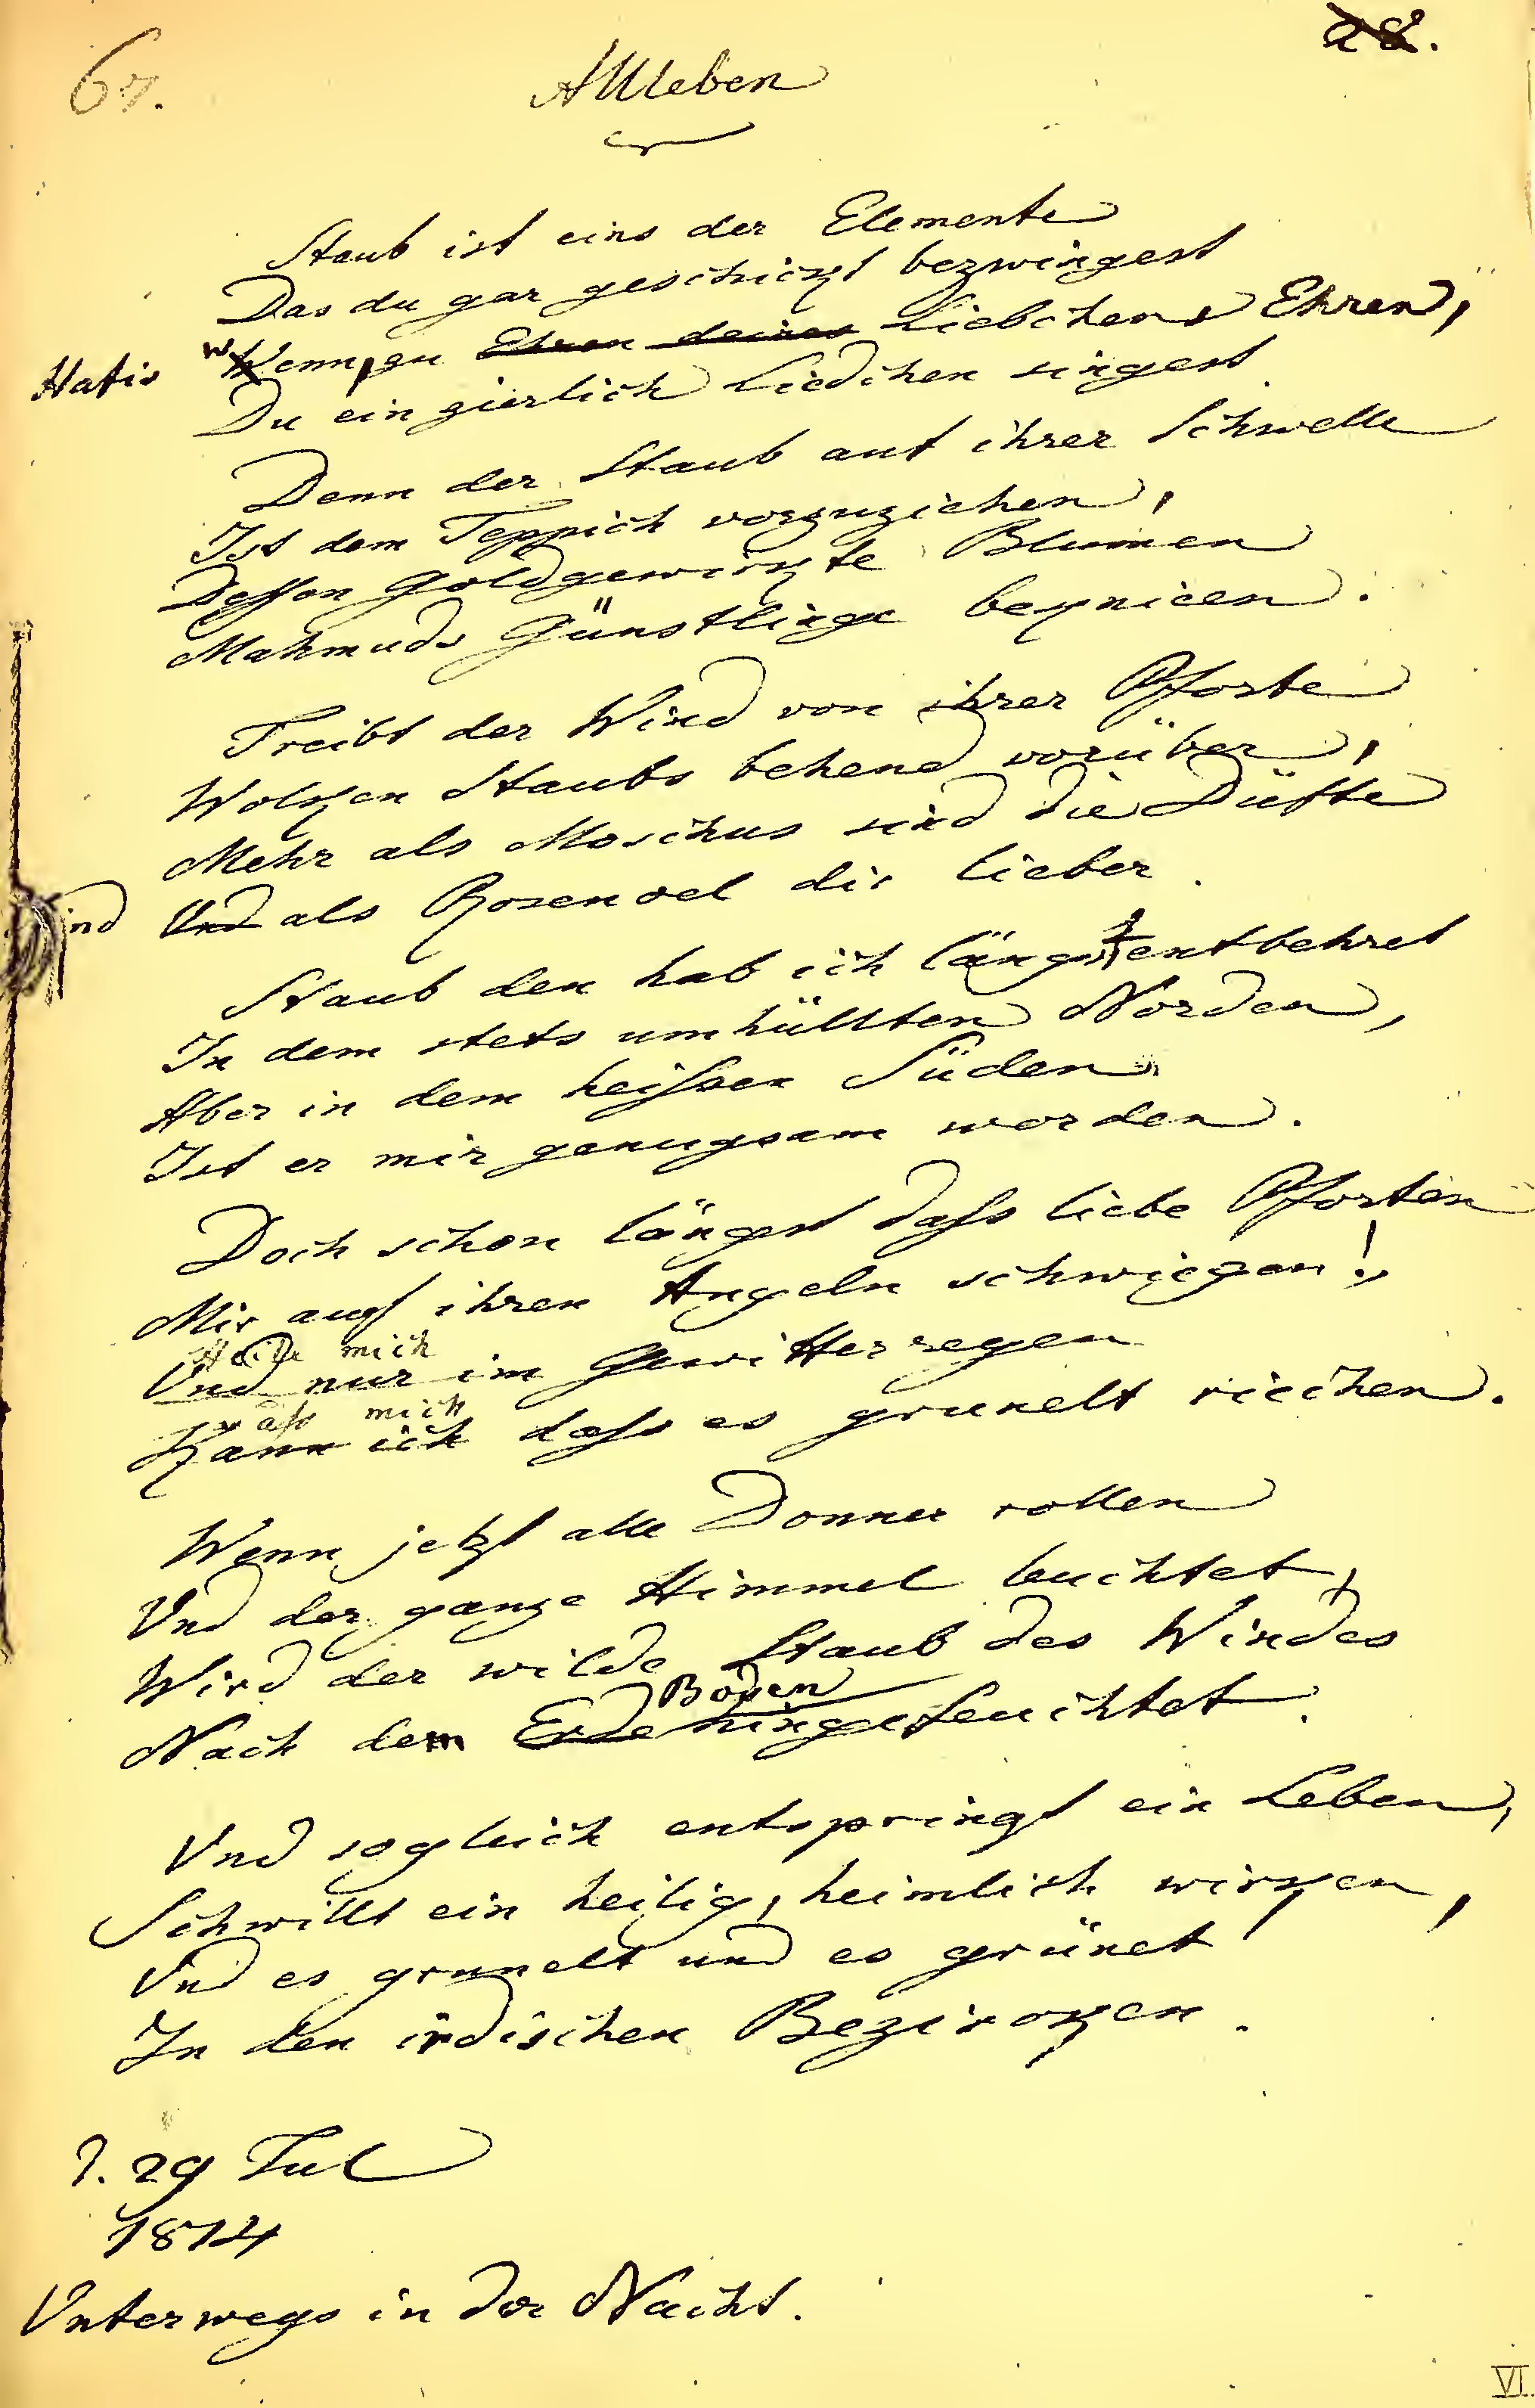 28.
67.
Allleben
Staub ist eins der Elemente
Das du gar geschickt bezwingest
Hafis wenn, zu Ehren deines Liebchens Ehren,
Du ein zierlich Liedchen singest.
Denn der Staub auf ihrer Schwelle
Ist dem Teppich vorzuziehen,
Dessen Goldgewirkte Blumen
Mahmuds Günstlinge beknieen.
Treibt der Wind von ihrer Pforte
Wolken Staubs behend vorüber,
Mehr als Moschus sind die Düfte
Und Und als Rosenoel dir lieber.
Staub den hab ich längst entbehret
In dem stets umhüllten Norden,
Aber in dem heißen Süden
Ist er mir genugsam worden.
Doch schon längst daß liebe Pforten
Mir auf ihren Angeln schwiegen!
Heile mich
Und nur im Gewitterregen
Laß mich
Kann ich daß es grunelt riechen.
Wenn jetzt alle Donner rollen
Und der ganze Himmel leuchtet,
Wird der wilde Staub des Windes
Boden
Nach dem Erde hingefeuchtet.
Und sogleich entspringt ein Leben,
Schwillt ein heilig, heimlich wirken,
Und es grunelt und es grünet
In den irdischen Bezirken.
29 Jul
1814
Unterwegs in der Nacht.
VI.